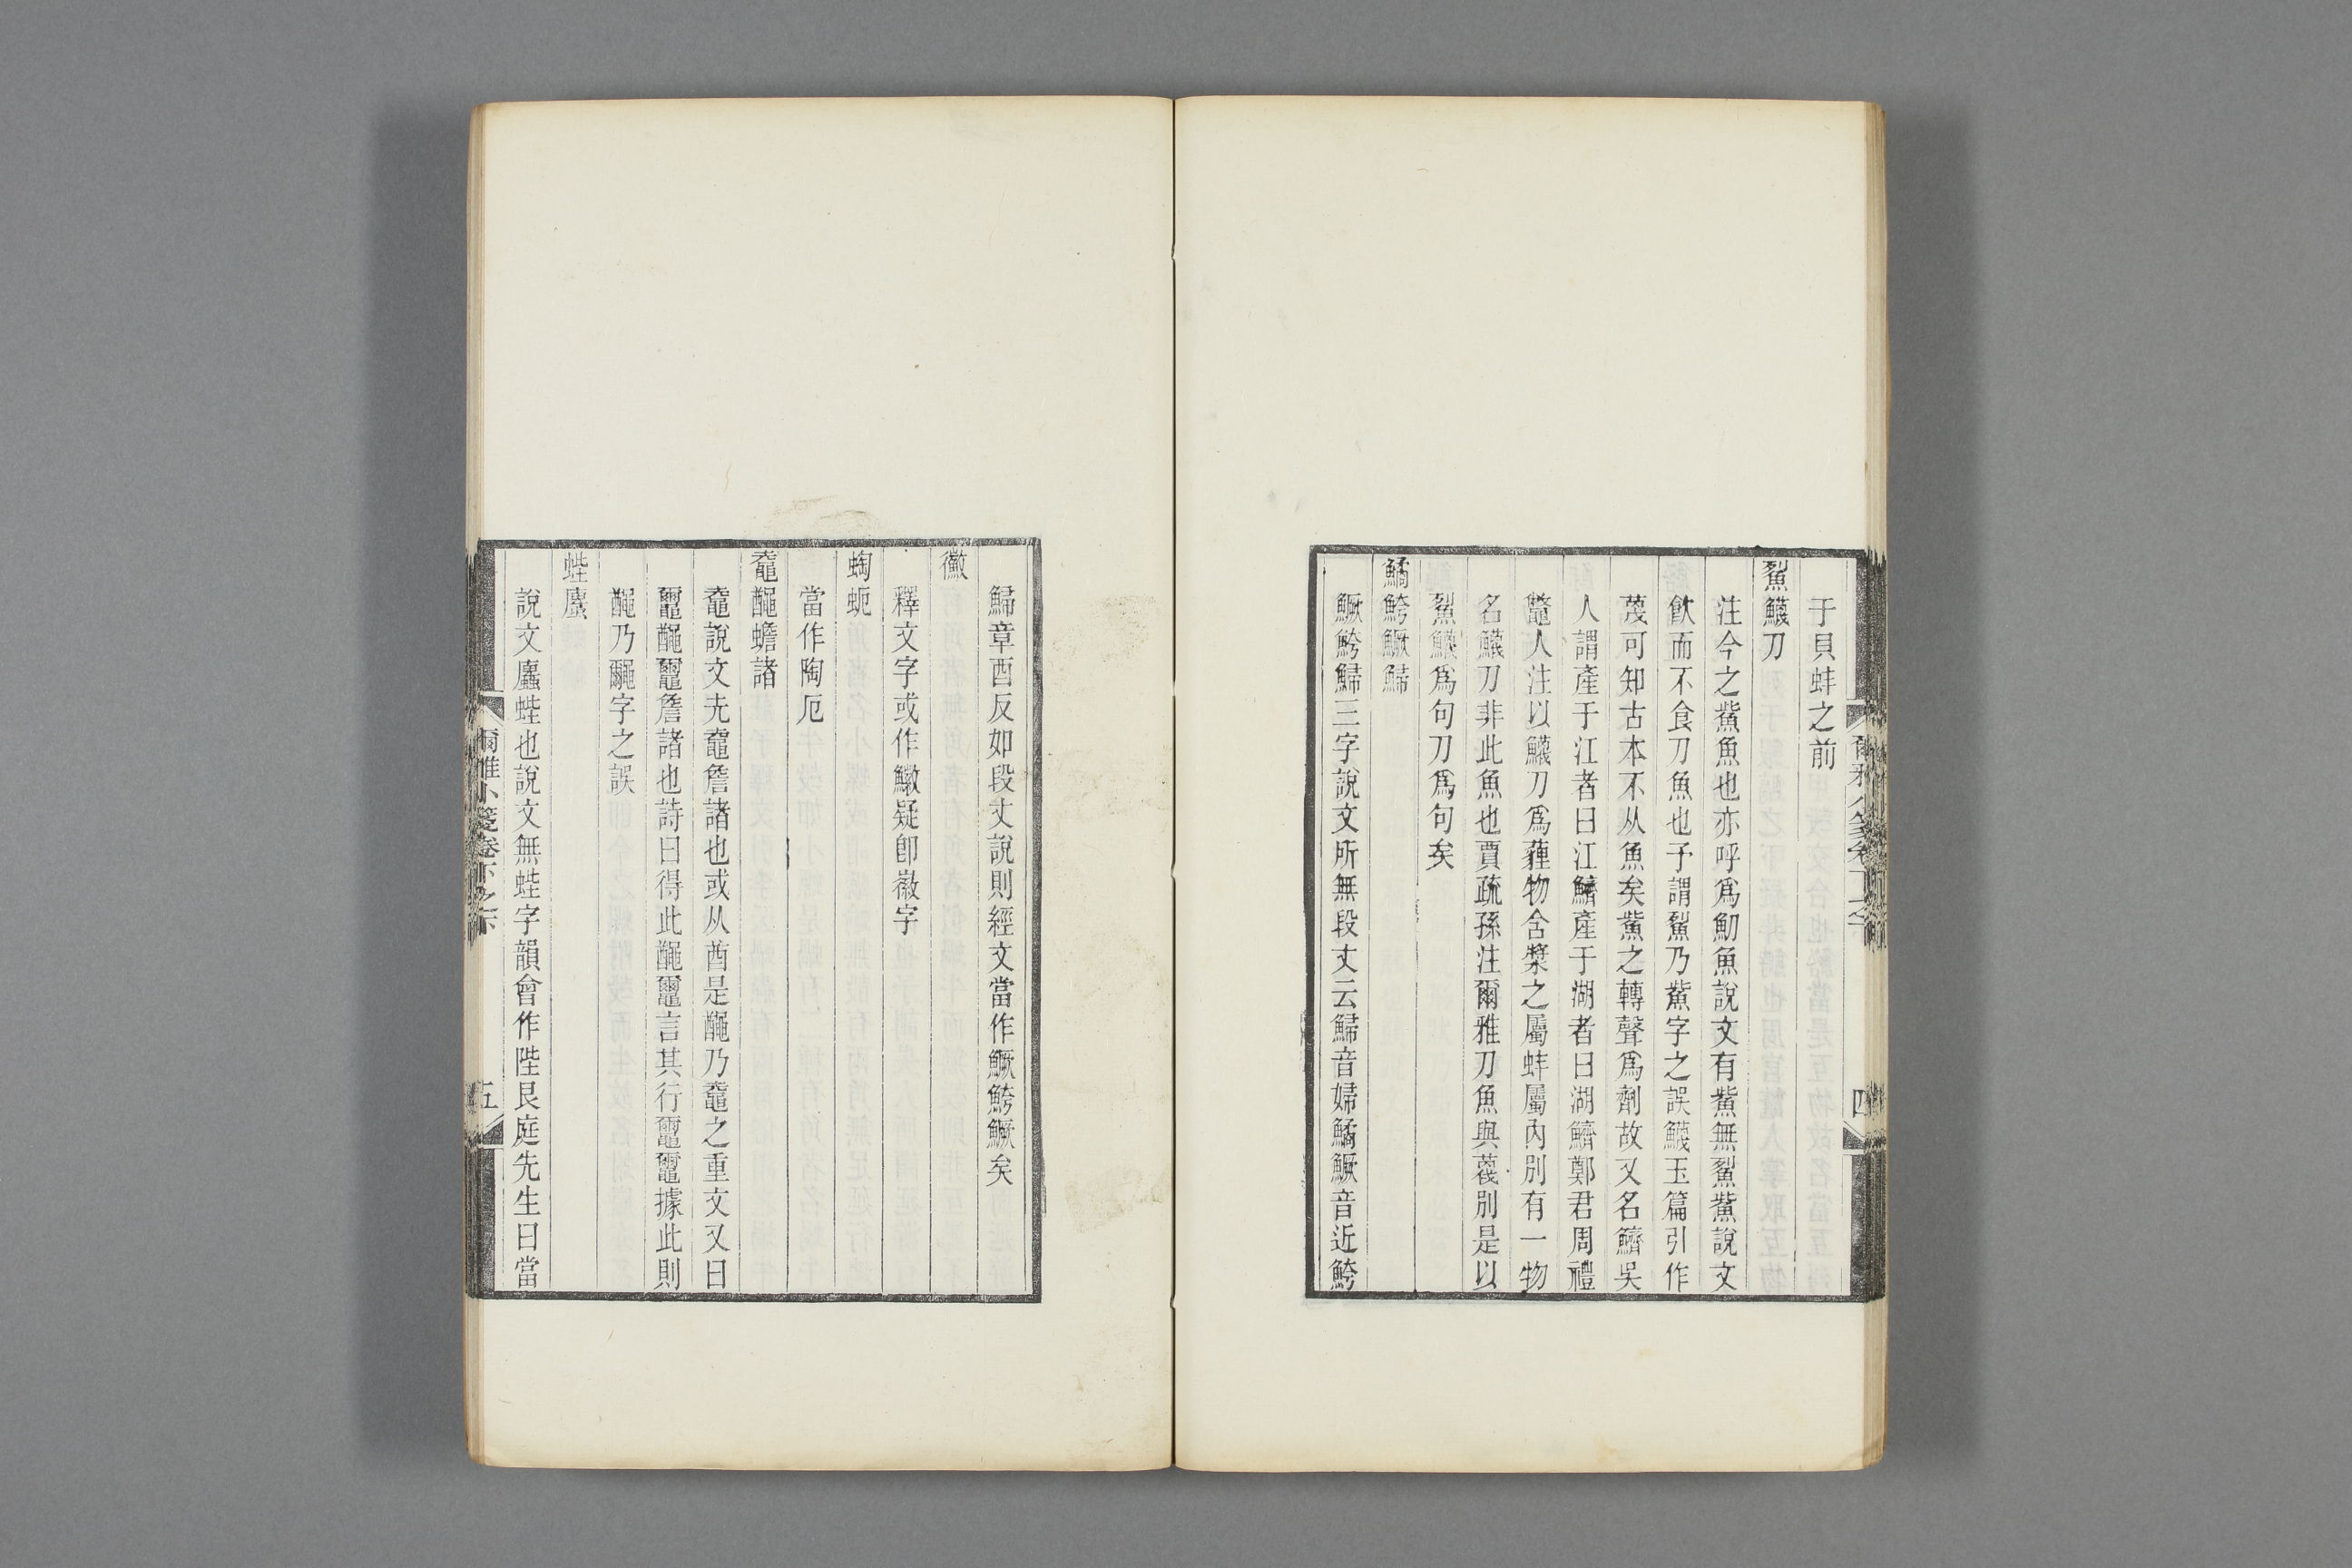 于貝蚌之前
鮤鱴刀
注今之鮆魚也亦呼爲魛魚說文有鮆無鮤鮆說文
飮而不食刀魚也予謂鮤乃鮆字之誤鱴玉篇引作
蔑可知古本不从魚矣鮆之轉聲爲劑故又名鱭吳
人謂產于江者曰江鱭產于湖者曰湖鱭鄭君周禮
鼈人注以鱴刀爲薶物含漿之屬蚌屬內別有一物
名鱴刀非此魚也賈疏孫注爾雅刀魚與蔑別是以
鮤鱴爲句刀爲句矣
鱊鮬鱖鯞
鱖鮬鯞三字說文所無段丈云鯞音婦鱊鱖音近鮬
四
鯞章酉反如段丈說則經文當作鱖鮬鱖矣
黴
釋文字或作鰴疑卽徽字
蜪蚅
當作陶厄
鼀𪓰蟾諸
鼀說文圥鼀詹諸也或从酋是𪓰乃鼀之重文又曰
𪓿𪓰𪓿詹諸也詩曰得此𪓰𪓿言其行𪓿𪓿據此則
𪓰乃𪓿字之誤
蜌螷
說文螷蜌也說文無蜌字韻會作陛艮庭先生曰當
爾雅小箋卷下之六
五